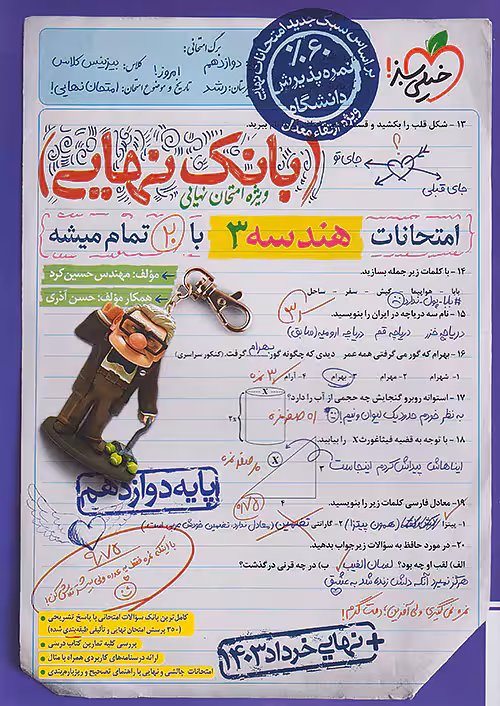 خیلی سبز!
بر اساس سبک جدید امتحانات نهایی
۶۰٪
نمره پذیرش
دانشگاه
ویژه ارتقاء معدل
برگ امتحانی:
دوازدهم
کلاس: بیزینس کلاس
امروز!
رشد
تاریخ و موضوع امتحان: امتحان نهایی!
۱۳- شکل قلب را بکشید و قسمت
ببرید.
؟
جای تو
جای قبلی
بانک نهایی
ویژه امتحان نهایی
امتحانات هندسه ۳ با ۲۰ تمام میشه
مؤلف: مهندس حسین کرد
همکار مؤلف: حسن آذری
۱۴- با کلمات زیر جمله بسازید.
بابا - هواپیما - کیش - سفر - ساحل
#بابا-پول-ندارد
۱۵- نام سه دریاچه در ایران را بنویسید.
دریاچه خزر دریاچه قم دریاچه ارومیه (سابق)
۱۶- بهرام که گور می‌گرفتی همه عمر دیدی که چگونه گور بهرام گرفت. (کنکور سراسری)
۱- شهرام ۲- مهرام ۳- بهرام ۴- آرام
۱۷- استوانه روبرو گنجایش چه حجمی از آب را دارد؟
به نظر خودم حدود یک لیوان و نیم!
X
۲x
۱۸- با توجه به قضیه فیثاغورث X را بیابید.
ایناهاش پیداش کردم اینجاست
X
۳
۴
پایه دوازدهم
۱۹- معادل فارسی کلمات زیر را بنویسید.
۲- گارانتی
۲۰- در مورد حافظ به سؤالات زیر جواب بدهید.
الف) لقب او چه بود؟ لسان الغیب ب) در چه قرنی درگذشت؟
هرگز نمیرد آنکه دلش زنده شد به عشق
کامل‌ترین بانک سؤالات امتحانی با پاسخ تشریحی
(۳۵۰ پرسش امتحان نهایی و تألیفی طبقه‌بندی شده)
بررسی کلیه تمارین کتاب درسی
ارائه درسنامه‌های کاربردی همراه با مثال
امتحانات چالشی و نهایی با راهنمای تصحیح و ریزبارم‌بندی
+ نهایی خرداد ۱۴۰۳